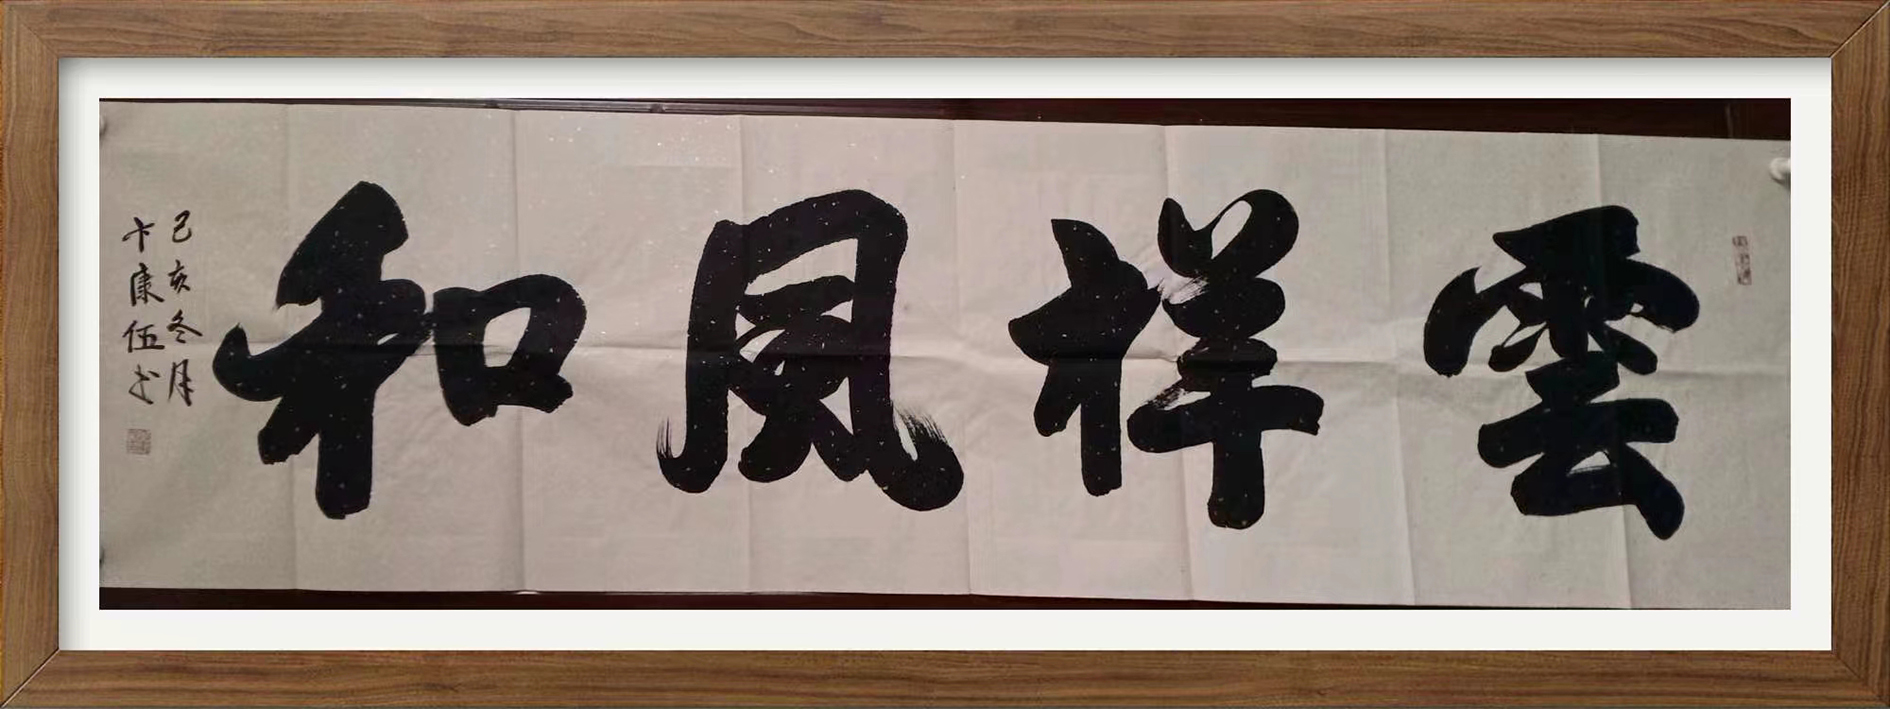 雲祥風和
己亥冬月
卞康伍书